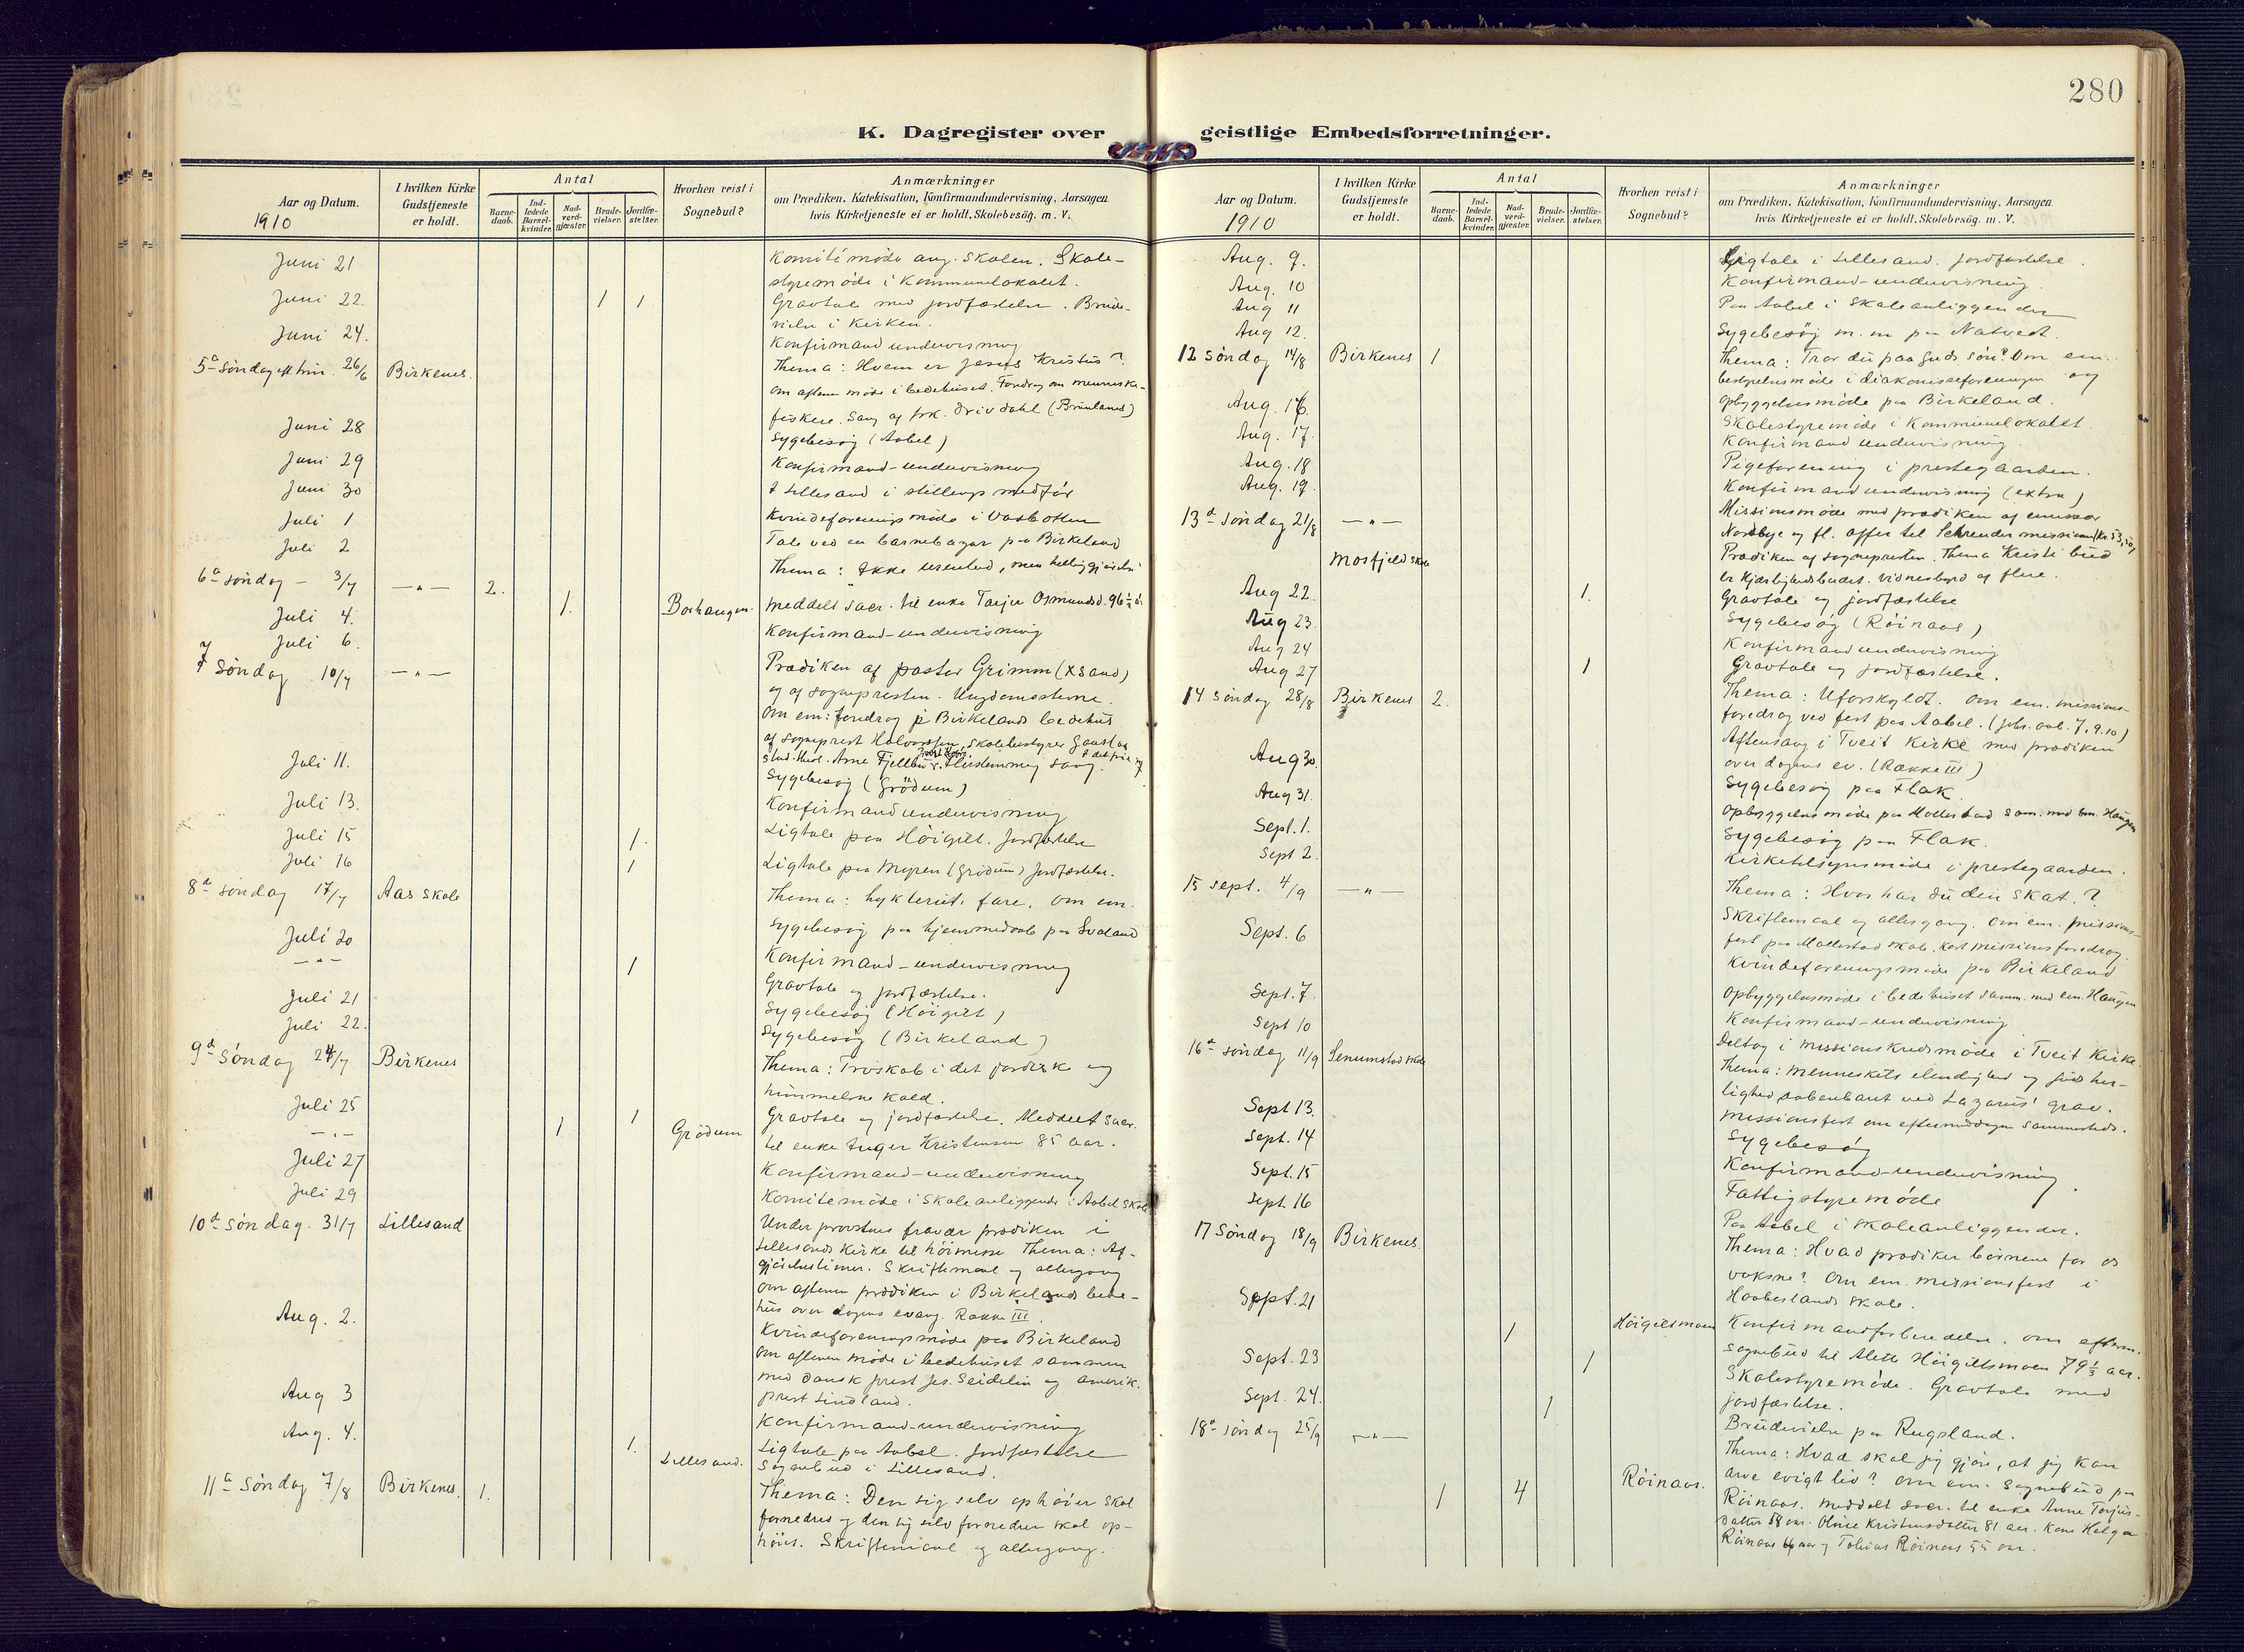 280
K. Dagregister over geistlige Embedsforretninger.
Aar og Datum.
1910
I hvilken Kirke Gudstjeneste er holdt.
Antal
Barnedaab.
Indledede Barselkvinder.
Nadverdgjæster.
Brudevielser.
Jordfæstelser.
Hvorhen reist i Sognebud?
Anmærkninger
om Prædiken. Katekisation, Konfirmandundervisning, Aarsagen
hvis Kirketjeneste ei er holdt. Skolebesög. m. V.
Juni 21 Komitémöde ang. Skolen. Skole-
styremöde i Kommunelokalet.
Juni 22. 1 1 Gravtale med jordfæstelse. Brude-
vielse i Kirken.
Juni 24. Konfirmandundervisning
5te Söndag eft. trin. 26/6 Birkenes. Thema: Hvem er Jesus Kristus?
Om aftenen möde i bedehuset. Foredrag om menneske-
fiskere. Sang af frk. Drivdahl
Juni 28 Sygebesög (Aabel)
Juni 29 Konfirmand-undervisning
Juni 30 I Lillesand i stillings medför
Juli 1 Kvindeforeningsmöde i Vasbotten
Juli 2 Tale ved en barnebazar paa Birkeland
6te söndag - 3/7 —"— 2. Thema: Ikke
Juli 4. 1. meddelt sacr. til enke Tarjer Osmundsd. 96½ år
Juli 6. Konfirmand-undervisning
7 Söndag 10/7 —"— Prædiken af pastor Grimm (XSand)
og af sognepresten. Ungdomsstevne.
Om em: foredrag på Birkelands bedehus
af sogneprest Halvorssen, Skolebestyrer
stud. theol. Arne Fjellbu. Flerstemmig sang.
Juli 11. Sygebesög (Grödum)
Juli 13. Konfirmandundervisning
Juli 15 1. Ligtale paa Höigilt. Jordfæstelse
Juli 16 1 Ligtale paa Myren (Grödum) Jordfæstelse.
8de söndag 17/7 Aas skole Thema: hykleriets fare. Om em.
sygebesög paa hjemmedaab paa Svaland
Juli 20 Konfirmand-undervisning
—"— 1 Gravtale og jordfæstelse.
Juli 21 Sygebesög (Höigilt)
Juli 22. Sygebesög (Birkeland)
9de Söndag 24/7 Birkenes Thema: Troskab i det jordiske og
himmelske kald.
Juli 25 1 Gravtale og jordfæstelse. Meddelt sacr.
—"— 1 Grödum til enke Inger Kristensen 85 aar.
Juli 27 Konfirmand-undervisning
Juli 29 Komitemöde i Skoleanliggende i Aabel skole
10de söndag. 31/7 Lillesand Under provstens fravær prædiken i
Lillesands Kirke til höimesse Thema: Af-
gjörelsestimer. Skriftemaal og altergang
Om aftenen prædiken i Birkelands bede-
hus over dagens evang. Række III.
Aug. 2. Kvindeforeningsmöde paa Birkeland
Om aftenen möde i bedehuset sammen
med dansk prest Jes. Seidelin og amerik.
prest Lindland.
Aug 3 Konfirmand-undervisning
Aug. 4. 1. Ligtale paa Aabel. Jordfæstelse
Lillesand. Sognebud i Lillesand.
11te Söndag 7/8 Birkenes. 1. Thema: Den sig selv ophöier skal
fornedres og den sig selv fornedrer skal op-
höies. Skriftemaal og altergang.
Aar og Datum.
1910
I hvilken Kirke Gudstjeneste er holdt.
Antal
Barnedaab.
Indledede Barselkvinder.
Nadverdgjæster.
Brudevielser.
Jordfæstelser.
Hvorhen reist i Sognebud?
Anmærkninger
om Prædiken. Katekisation, Konfirmandundervisning, Aarsagen
hvis Kirketjeneste ei er holdt. Skolebesög. m. V.
Aug. 9. Ligtale i Lillesand. Jordfæstelse.
Aug. 10 Konfirmand-undervisning.
Aug 11 Paa Aabel i skoleanliggender
Aug 12. Sygebesög m.m paa Natvedt.
12 Söndag 14/8 Birkenes 1 Thema: Tror du paa Guds sön? Om em.
bestyrelsesmöde i diakonisseforeningen og
opbyggelsesmöde paa Birkeland.
Aug. 16. Skolestyremöde i Kommunelokalet.
Aug. 17. Konfirmandundervisning.
Aug. 18 Pigeforening i prestegaarden.
Aug. 19. Konfirmandundervisning (extra)
13de söndag 21/8 —"— Missionsmöde med prædiken af emissær
Nordbye og fl. Offer til Schreuder missionen (kr. 53,50)
Mosfjeld skole Prædiken af sognepresten. Thema Kristi bud
er kjærlighedsbudet. Vidnesbyrd af flere.
Aug 22. 1. Gravtale og jordfæstelse
Aug 23. Sygebesög (Röinaas)
Aug 24 Konfirmandundervisning
Aug 27 1 Gravtale og jordfæstelse.
14 Söndag 28/8 Birkenes 2. Thema: Uforskyldt. Om em. missions-
foredrag ved fest paa Aabel. (Joh. aab. 7, 9.10)
Aftensang i Tveit Kirke med prædiken
over dagens ev. (Række III)
Aug 30. Sygebesög paa Flak
Aug 31. Opbyggelsesmöde paa Mollestad sam. med em. Haugen
Sept. 1. Sygebesög paa Flak.
Sept 2. Kirketilsynsmöde i prestegaarden.
15 sept. 4/9 —"— Thema: Hvor har du din skat?
Skriftemaal og altergang. Om em. missions-
fest paa Mollestad skole. Kort missionsforedrag.
Sept. 6 Kvindeforeningsmöde paa Birkeland
Sept. 7. Opbyggelsesmöde i bedehuset samm. med em. Haugen
Sept 10 Konfirmand-undervisning
Deltog i missionskredsmöde i Tveit Kirke.
16de söndag 11/9 Senumstad skole Thema: Menneskets elendighed og Guds her-
lighed aabenbaret ved Lazarus' grav.
Missionsfest om eftermiddagen sammesteds.
Sept 13. Sygebesög
Sept. 14 Konfirmand-undervisning
Sept. 15 Fattigstyremöde
Sept. 16 Paa Aabel i skoleanliggender.
17 Söndag 18/9 Birkenes. Thema: Hvad prædiker börnene for os
voksne? Om em. missionsfest i
Haabeslands skole.
Sept. 21 Konfirmandforberedelse. Om efterm.
1 Höigiltsmoen sognebud til Alette Höigiltsmoen 79½ aar.
Sept. 23 1 Skolestyremöde. Gravtale med
jordfæstelse.
Sept. 24. 1 Brudevielse paa Rugsland.
18de söndag 25/9 —"— Thema: Hvad skal jeg gjöre, at jeg kan
arve evigt liv? Om em. Sognebud paa
1 4 Röinaas. Röinaas. Meddelt sacr. til enke Anne Terjus-
datter 58 aar. Oline Kristensdatter 81 aar. Kone Helga
Röinaas aar og Tobias Röinaas 55 aar.